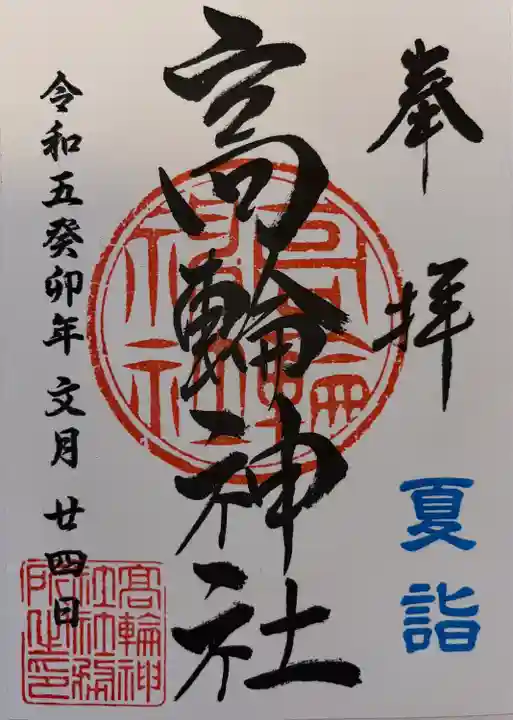 奉拝
夏詣
高輪神社
高輪神社
令和五癸卯年文月廿四日
高輪神
社社務
所之印